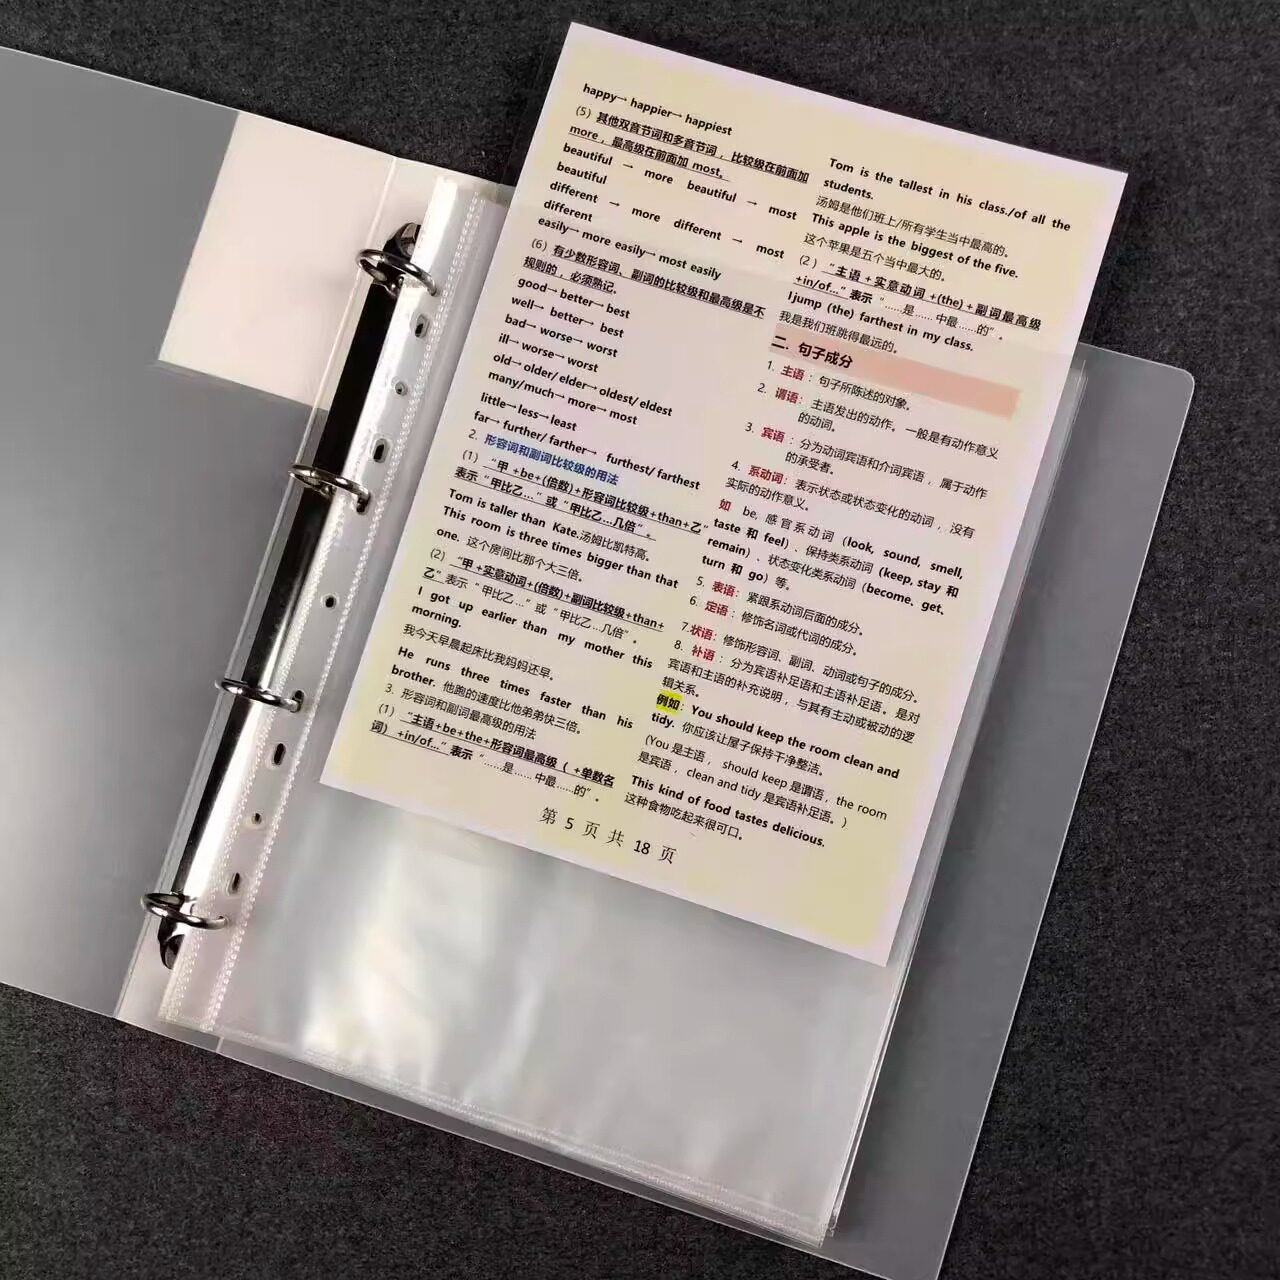 happy→ happier→ happiest
(5) 其他双音节词和多音节词，比较级在前面加
more，最高级在前面加 most。
beautiful → more beautiful → most
beautiful
different → more different → most
different
easily→ more easily→ most easily
(6) 有少数形容词、副词的比较级和最高级是不
规则的，必须熟记。
good→ better→ best
well→ better→ best
bad→ worse→ worst
ill→ worse→ worst
old→ older/ elder→ oldest/ eldest
many/much→ more→ most
little→ less→ least
far→ further/ farther→ furthest/ farthest
2. 形容词和副词比较级的用法
(1) “甲 +be+(倍数)+形容词比较级+than+乙”
表示“甲比乙...”或“甲比乙...几倍”。
Tom is taller than Kate.汤姆比凯特高。
This room is three times bigger than that
one. 这个房间比那个大三倍。
(2) “甲 +实意动词+(倍数)+副词比较级+than+
乙”表示“甲比乙...”或“甲比乙...几倍”。
I got up earlier than my mother this
morning.
我今天早晨起床比我妈妈还早。
He runs three times faster than his
brother. 他跑的速度比他弟弟快三倍。
3. 形容词和副词最高级的用法
(1) “主语+be+the+形容词最高级（ +单数名
词）+in/of...”表示“......是...... 中最......的”。
Tom is the tallest in his class./of all the
students.
汤姆是他们班上/所有学生当中最高的。
This apple is the biggest of the five.
这个苹果是五个当中最大的。
(2) “主语 + 实意动词 +(the) + 副词最高级
+in/of...”表示“......是...... 中最......的”。
I jump (the) farthest in my class.
我是我们班跳得最远的。
二. 句子成分
1. 主语：句子所陈述的对象。
2. 谓语：主语发出的动作。一般是有动作意义
的动词。
3. 宾语：分为动词宾语和介词宾语，属于动作
的承受者。
4. 系动词：表示状态或状态变化的动词，没有
实际的动作意义。
如 be, 感官系动词（look, sound, smell,
taste 和 feel）、保持类系动词（keep, stay 和
remain）、状态变化类系动词（become、get、
turn 和 go）等。
5. 表语：紧跟系动词后面的成分。
6. 定语：修饰名词或代词的成分。
7.状语：修饰形容词、副词、动词或句子的成分。
8. 补语：分为宾语补足语和主语补足语。是对
宾语和主语的补充说明，与其有主动或被动的逻
辑关系。
例如：You should keep the room clean and
tidy. 你应该让屋子保持干净整洁。
(You 是主语， should keep 是谓语，the room
是宾语，clean and tidy 是宾语补足语。)
This kind of food tastes delicious.
这种食物吃起来很可口。
第 5 页 共 18 页